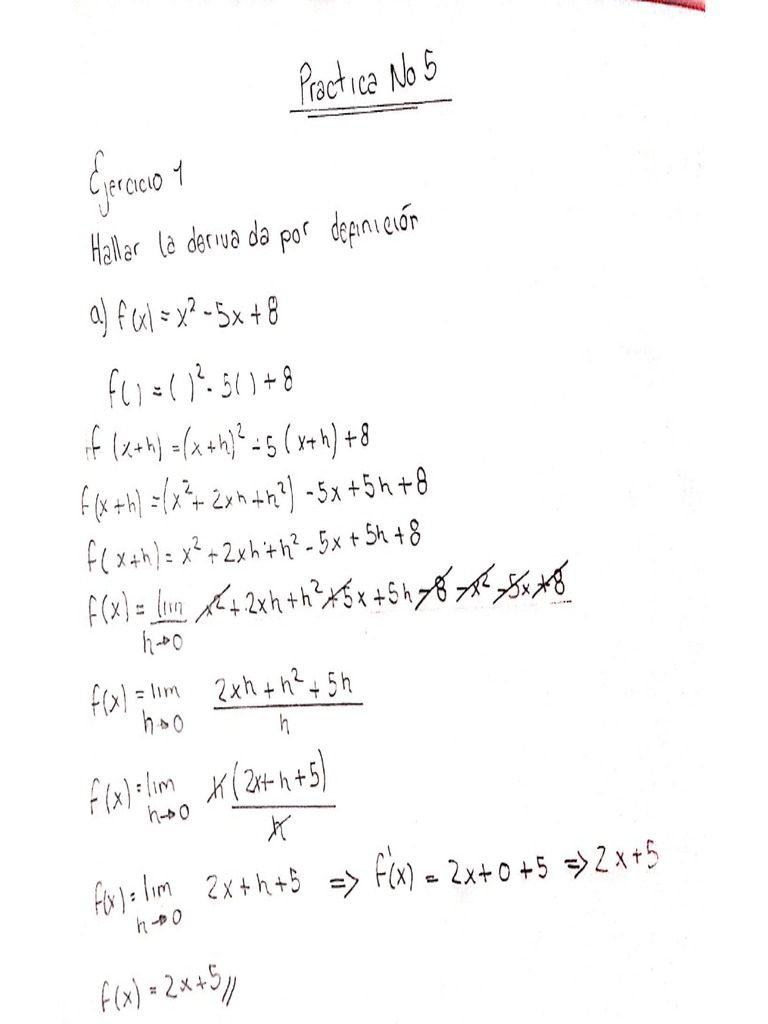 Practica No 5
Ejercicio 1
Hallar la derivada por definición
a) f(x) = x² - 5x + 8
f( ) = ( )² - 5( ) + 8
f(x+h) = (x+h)² - 5(x+h) + 8
f(x+h) = (x² + 2xh + h²) - 5x + 5h + 8
f(x+h) = x² + 2xh + h² - 5x + 5h + 8
f(x) = lim x² + 2xh + h² + 5x + 5h - 8 - x² - 5x + 8
h→0
f(x) = lim 2xh + h² + 5h
h→0 h
f(x) = lim h(2x+h+5)
h→0 h
f(x) = lim 2x + h + 5 => f'(x) = 2x + 0 + 5 => 2x + 5
h→0
f(x) = 2x + 5 //